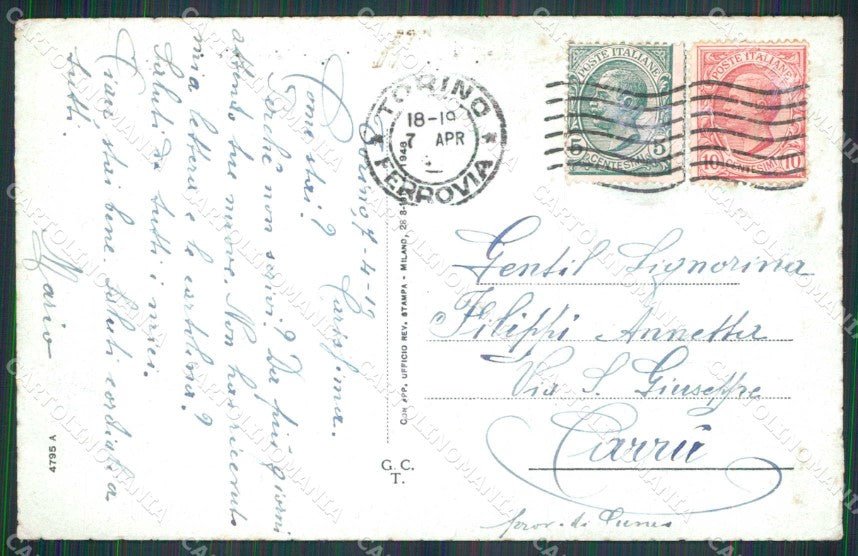 Torino, 7-4-19
Carissima.
Come stai?
Perchè non scrivi? Da più giorni
attendo tue nuove. Non hai ricevuto
mia lettera e le cartoline?
Saluti da tutti i miei.
stai bene. Saluti cordiali a
tutti.
Mario
4795 A
TORINO
18-19
7 APR
FERROVIA
POSTE ITALIANE
5 CENTESIMI 5
POSTE ITALIANE
10 CENTESIMI 10
CON APP. UFFICIO REV. STAMPA - MILANO, 28 8-1
G. C.
T.
Gentil Signorina
Filippi Annetta
Via S. Giuseppe
Carrù
prov. di Cuneo
CARTOLINOMANIA